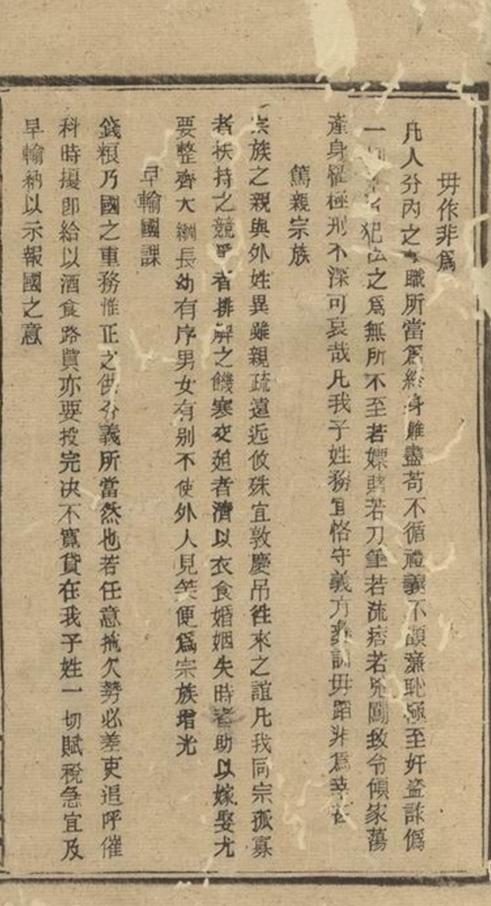 毋作非爲
凡人分內之職所當爲終身難盡苟不循禮義不顧廉恥極至奸盜詐僞
一切犯法之爲無所不至若嫖賭若刀筆若流痞若兇鬬致令傾家蕩
產身罹極刑不深可哀哉凡我子姓務宜恪守義方彝訓毋蹈非爲
篤親宗族
宗族之親與外姓異雖親疏遠近攸殊宜敦慶吊往來之誼凡我同宗孤寡
者扶持之競爭者排解之饑寒交廹者濟以衣食婚姻失時者助以嫁娶尤
要整齊大綱長幼有序男女有別不使外人見笑便爲宗族增光
早輸國課
錢粮乃國之重務惟正之供分義所當然也若任意拖欠勢必差吏追呼催
科時擾卽給以酒食路費亦要投完决不寬貸在我子姓一切賦稅急宜及
早輸納以示報國之意